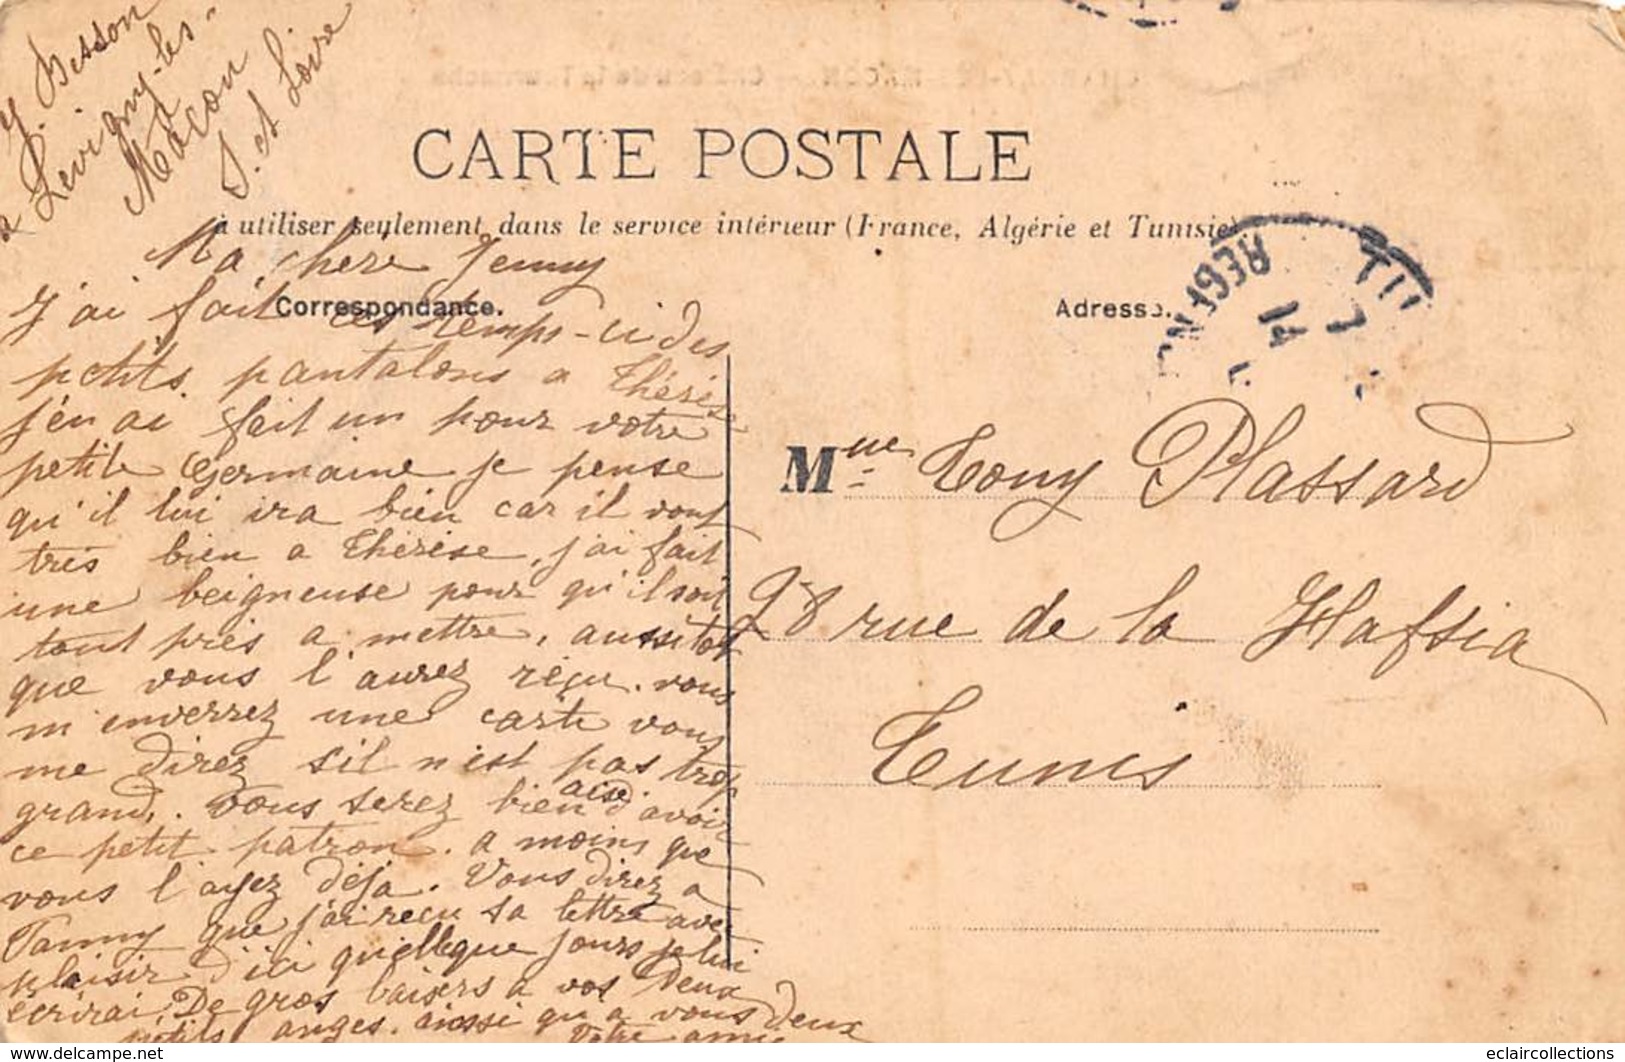 Y. Besson
a Levigny-les-
Macon
S. et Loire
CARTE POSTALE
à utiliser seulement dans le service intérieur (France, Algérie et Tunisie)
Correspondance.
Adresse.
Ma chere Jenny
J'ai fait ces temps-ci des
petits pantalons a Thérèse
j'en ai fait un pour votre
petite Germaine je pense
qu'il lui ira bien car il vont
très bien a Thérèse, j'ai fait
une beigneuse pour qu'il soit
tout près a mettre, aussitot
que vous l'aurez réçu. vous
m'enverrez une carte vous
me direz s'il n'est pas trop
grand. Vous serez bien aise d'avoir
ce petit patron. a moins que
vous l'ayez déja. Vous direz a
Fanny que j'ai reçu sa lettre avec
plaisir d'ici quellque jours je lui
écrirai. De gros baisers a vos deux
petits anges. aiossi qu'a vous deux
Votre amie
Mme Tony Plassard
28 rue de la Hafsia
Tunis
eclaircollections